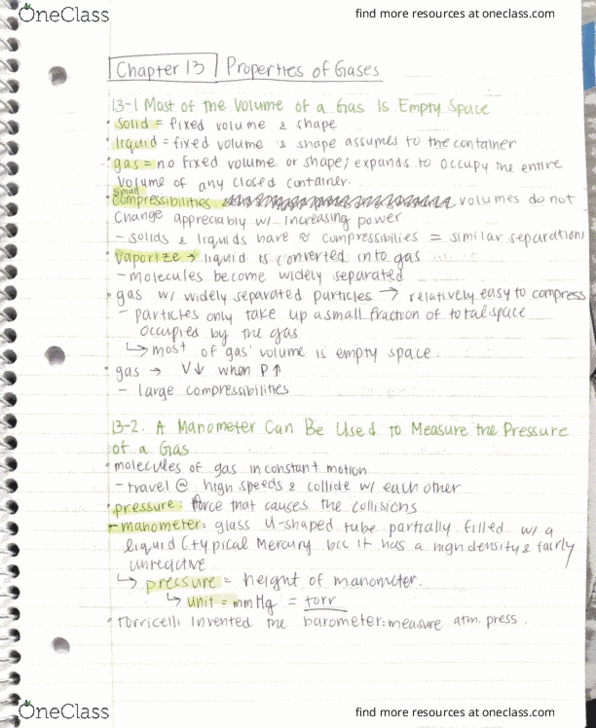 OneClass
find more resources at oneclass.com
Chapter 13 Properties of Gases
13-1 Most of the Volume of a Gas Is Empty Space
• solid = fixed volume & shape
• liquid = fixed volume & shape assumes to the container
• gas = no fixed volume or shape; expands to occupy the entire
volume of any closed container.
small
• compressibilities volumes do not
change appreciably w/ increasing power
- solids & liquids have ≈ compressibilies = similar separations
• vaporize → liquid is converted into gas
- molecules become widely separated
• gas w/ widely separated particles → relatively easy to compress
- particles only take up a small fraction of total space
occupied by the gas
↳ most of gas' volume is empty space.
• gas → V↓ when P↑
- large compressibilities
13-2. A Manometer Can Be Used to Measure the Pressure
of a Gas
• molecules of gas in constant motion
- travel @ high speeds & collide w/ each other
• pressure: force that causes the collisions
- manometer: glass U-shaped tube partially filled w/ a
liquid (typical Mercury b/c it has a high density & fairly
unreactive
↳ pressure = height of manometer.
↳ unit = mmHg = torr
• Torricelli invented the barometer: measure atm. press.
OneClass
find more resources at oneclass.com